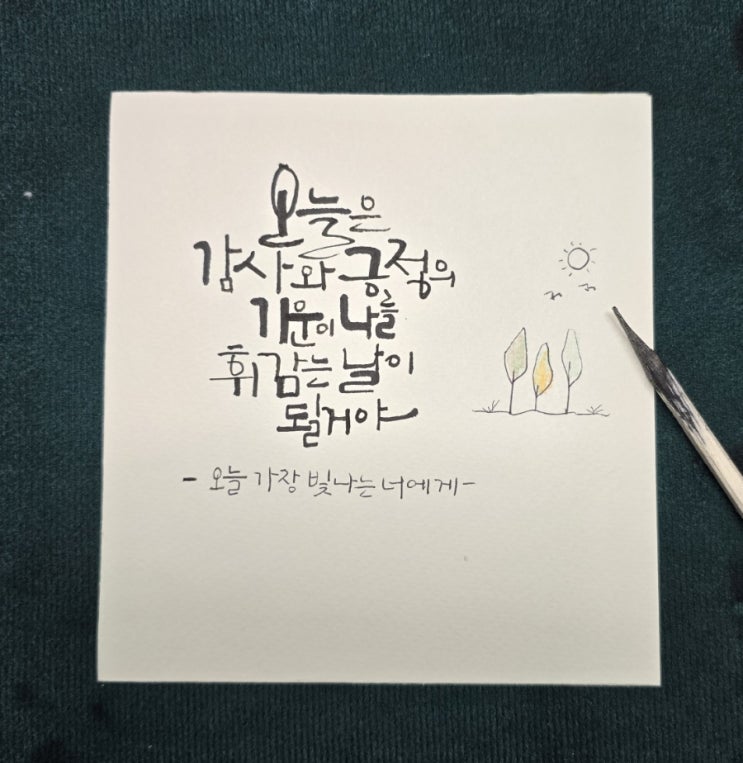 오늘은
감사와 긍정의
기운이 나를
휘감는 날이
될거야
- 오늘 가장 빛나는 너에게 -